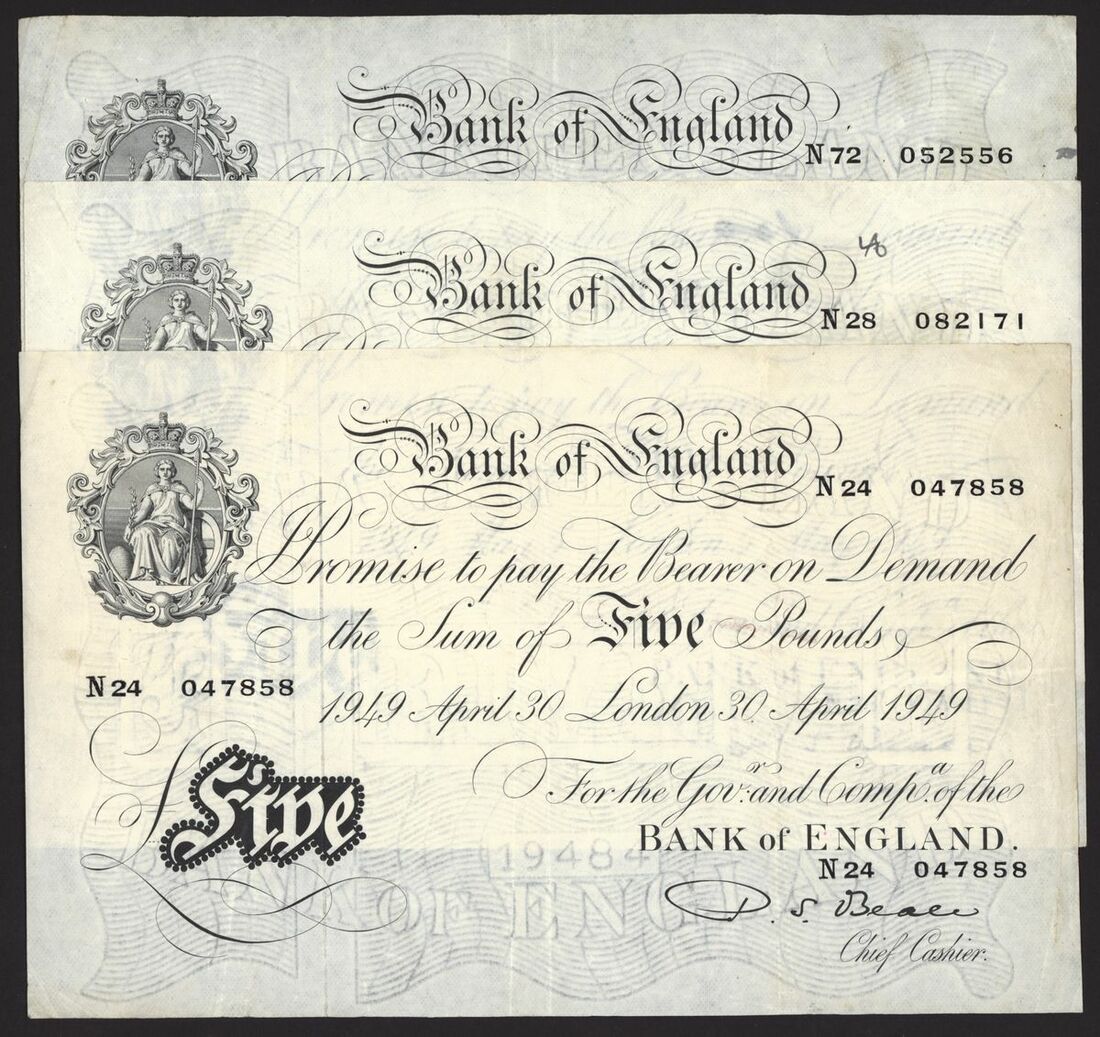 Bank of England
N72 052556
Bank of England
N28 082171
Bank of England
N24 047858
I Promise to pay the Bearer on Demand
the Sum of Five Pounds
N24 047858
1949 April 30 London 30 April 1949
£Five
For the Govr. and Compa. of the
BANK of ENGLAND.
N24 047858
P. S. Beale
Chief Cashier.
19484
OF ENGLAN